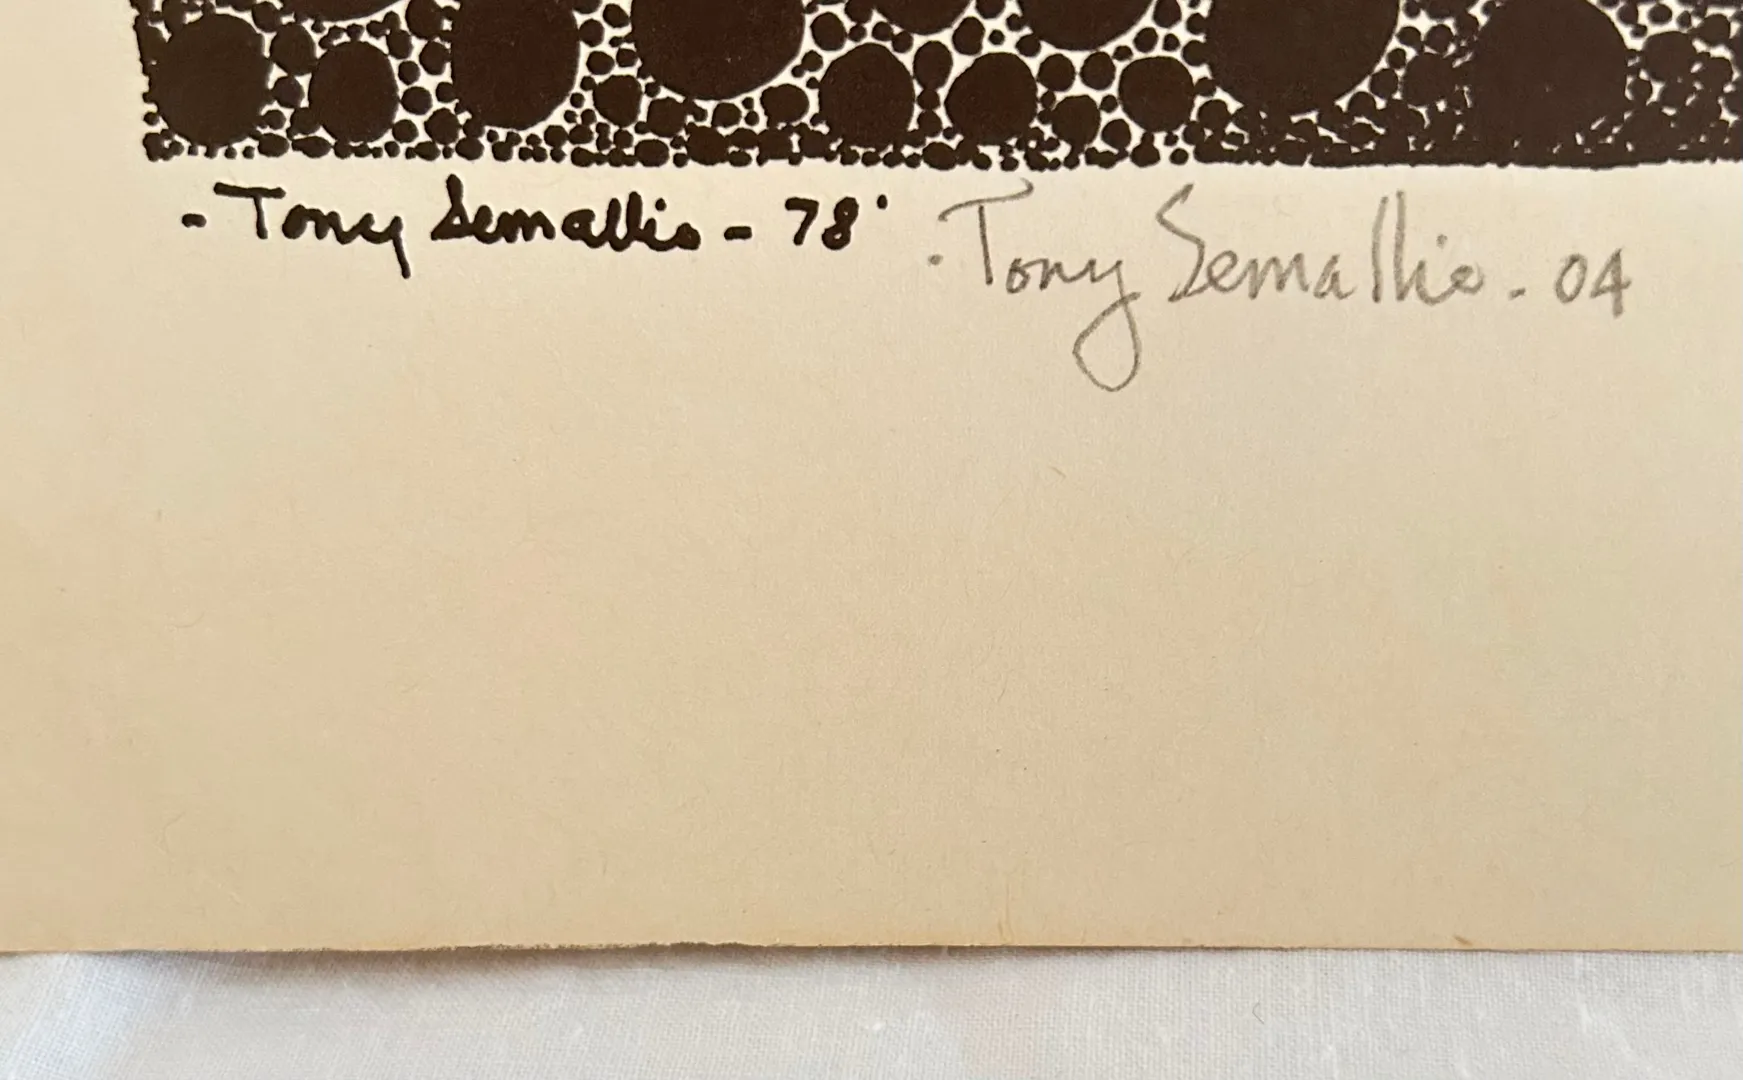 - Tony Semallie - 78'
. Tony Semallie - 04